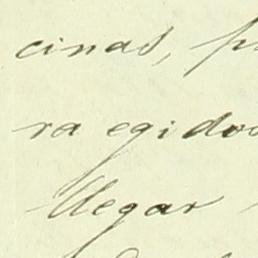 cinas, p
ra egidos
llegar